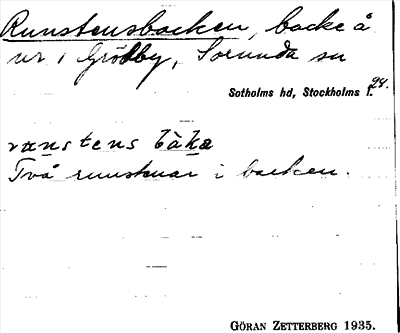 Runstensbacken, backe å
nr 1 Grödby, Sorunda sn
Sotholms hd, Stockholms l. 28.
runstens bàka
Två runstenar i backen.
GÖRAN ZETTERBERG 1935.